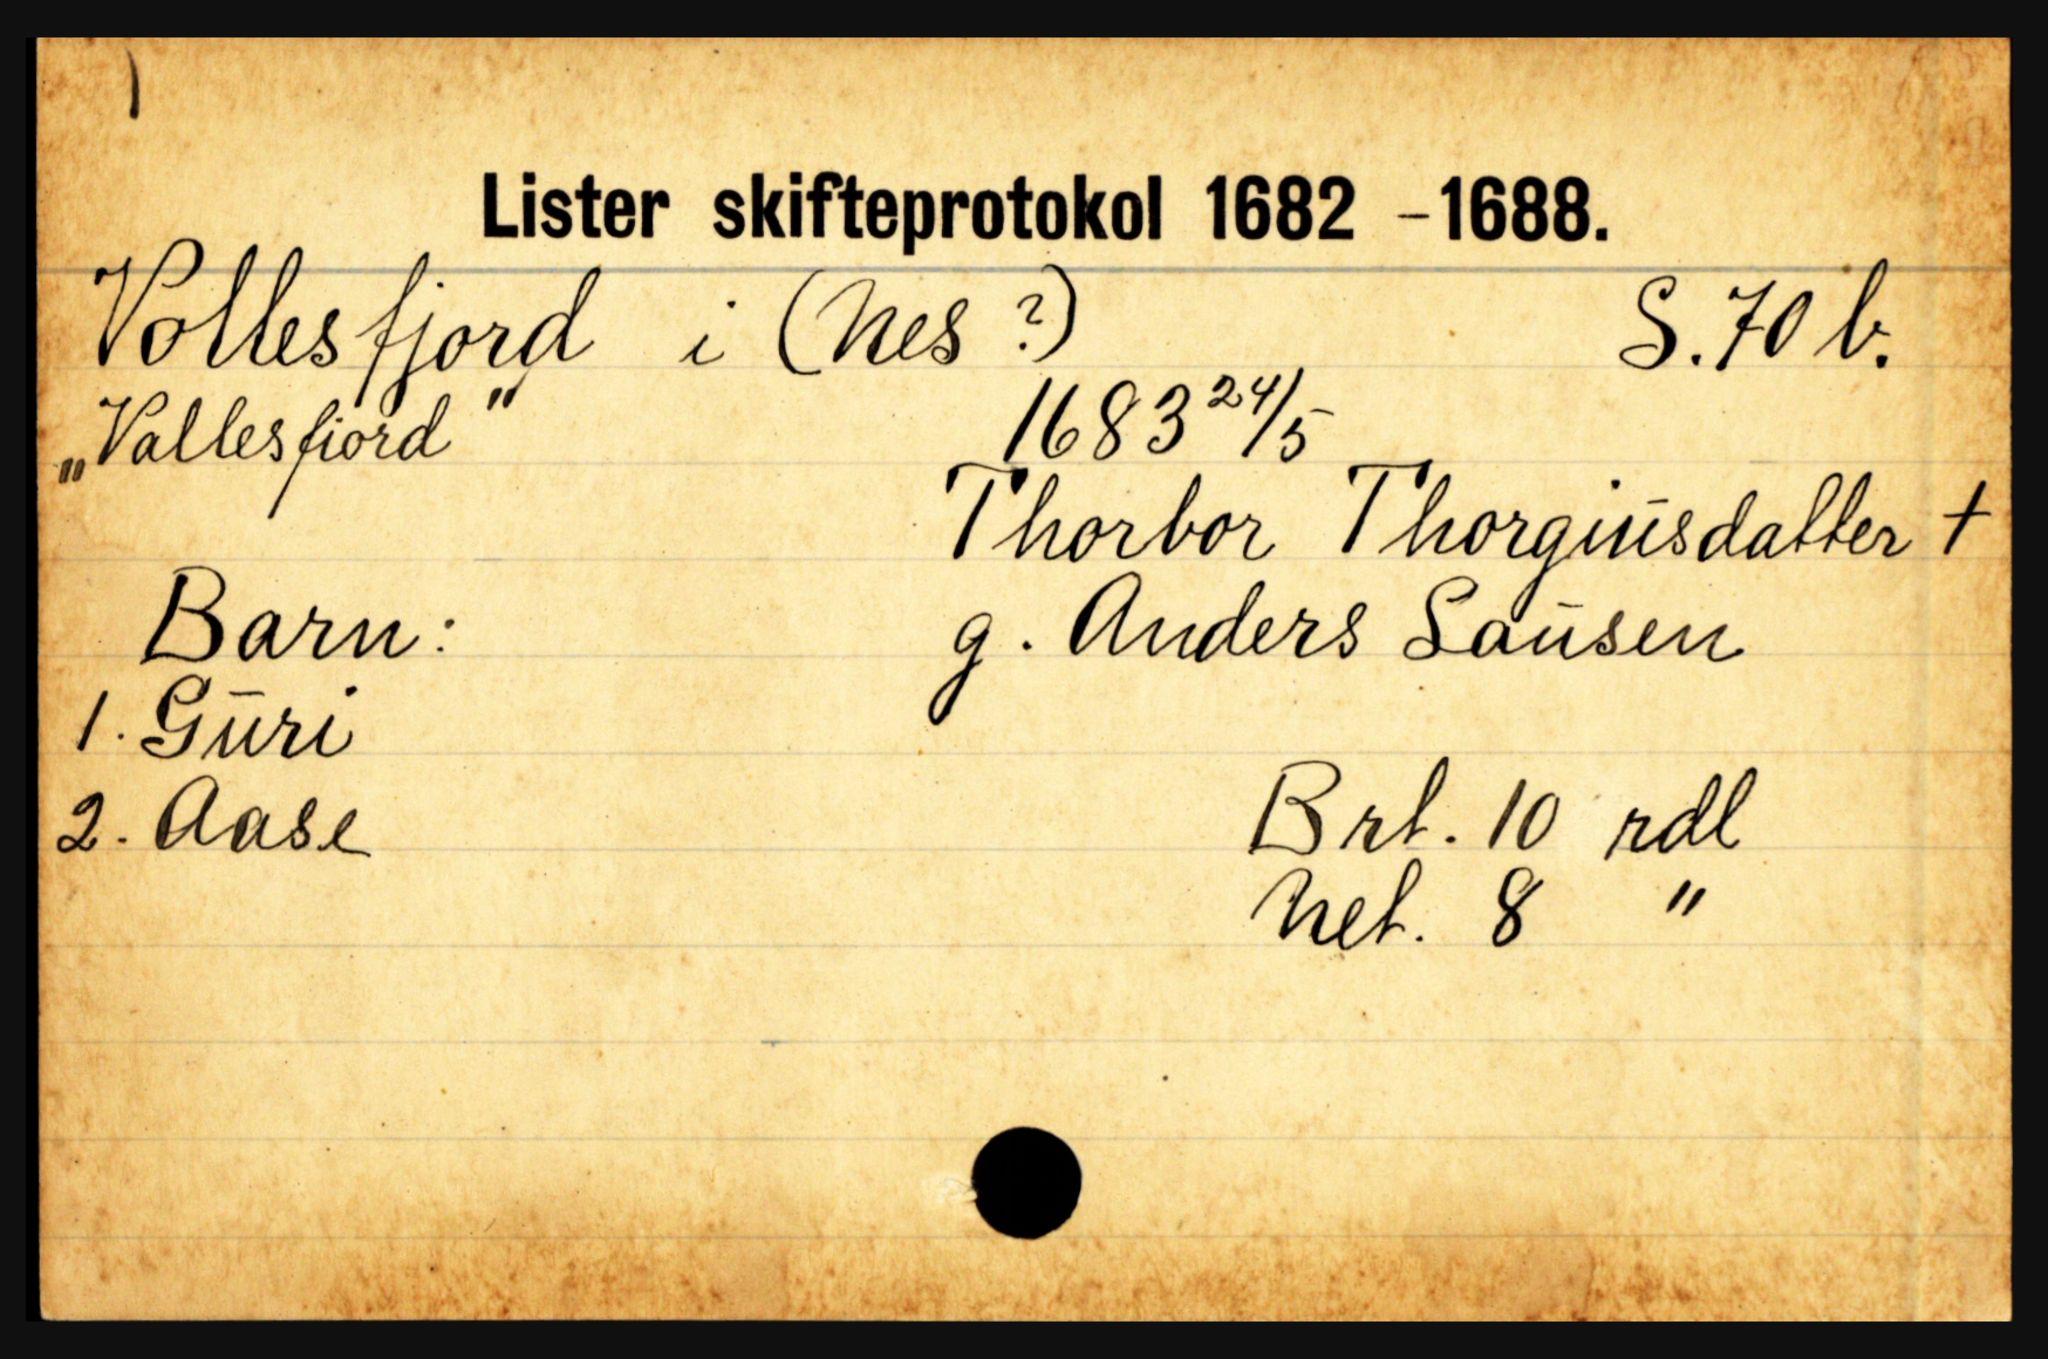 Lister skifteprotokol 1682 - 1688.
Vollesfjord i (Nes ?) S. 70 b.
„Vallesfiord" 1683 24/5
Thorbor Thorgiūsdatter +
Barn: g. Anders Saūsen
1. Gūri
2. Aase Brt. 10 rdl
Net. 8 "